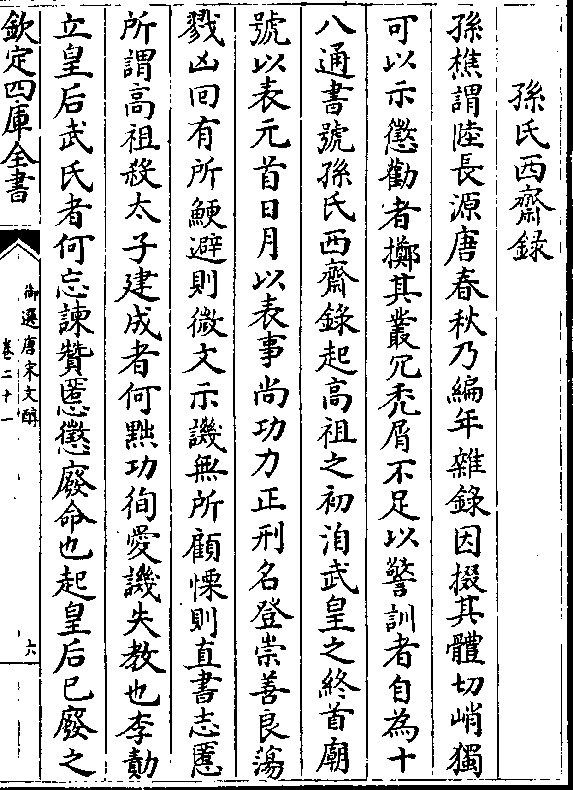 孫氏西齋錄
孫樵謂陸長源唐春秋乃編年雜錄因掇其體切峭獨
可以示懲勸者擲其叢冗秃屑不足以警訓者自為十
八通書號孫氏西齋錄起高祖之初洎武皇之終首廟
號以表元首日月以表事尚功力正刑名登崇善良蕩
戮凶回有所鯁避則微文示譏無所顧慄則直書志慝
所謂高祖殺太子建成者何黜功徇愛譏失教也李勣
立皇后武氏者何忘諫贊慝懲廢命也起皇后已廢之
欽定四庫全書
御選唐宋文醇
卷二十一
六